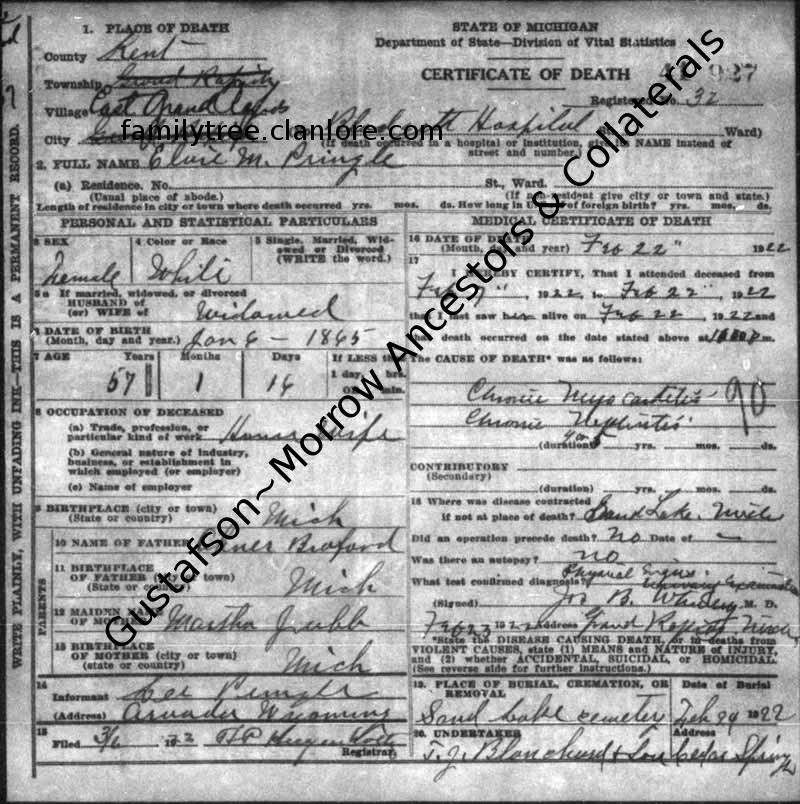 1. PLACE OF DEATH
County Kent
Township Grand Rapids
Village East Grand Rapids
City Blodgett Hospital Ward)
(If death occurred in a hospital or institution, give its NAME instead of
street and number.)
2. FULL NAME M. Pringle
(a) Residence. No. St., Ward.
(Usual place of abode.) (If nonresident give city or town and state.)
Length of residence in city or town where death occurred yrs. mos. ds. How long in U.S. if of foreign birth? yrs. mos. ds.
STATE OF MICHIGAN
Department of State—Division of Vital Statistics
CERTIFICATE OF DEATH
927
Registered No. 32
familytree.clanlore.com
Gustafson~Morrow Ancestors & Collaterals
WRITE PLAINLY, WITH UNFADING INK—THIS IS A PERMANENT RECORD.
PERSONAL AND STATISTICAL PARTICULARS
3 SEX
Female
4 Color or Race
White
5 Single, Married, Widowed or Divorced
(WRITE the word.)
5a If married, widowed, or divorced
HUSBAND of
(or) WIFE of Widowed
6 DATE OF BIRTH
(Month, day and year.) Jan 6 - 1865
7 AGE Years Months Days If LESS than
1 day, hrs.
OR min.
57 1 16
8 OCCUPATION OF DECEASED
(a) Trade, profession, or
particular kind of work House Wife
(b) General nature of industry,
business, or establishment in
which employed (or employer)
(c) Name of employer
9 BIRTHPLACE (city or town)
(State or country) Mich
PARENTS
10 NAME OF FATHER
11 BIRTHPLACE
OF FATHER (city or town)
(State or country) Mich
12 MAIDEN NAME
OF MOTHER Martha
13 BIRTHPLACE
OF MOTHER (city or town)
(state or country) Mich
14
Informant Pringle
(Address) Arvada Wyoming
15
Filed 3/6 1922
Registrar.
MEDICAL CERTIFICATE OF DEATH
16 DATE OF DEATH
(Month, day and year) Feb 22" 1922
17
I HEREBY CERTIFY, That I attended deceased from
Feb , 1922, to Feb 22", 1922
that I last saw her alive on Feb 22, 1922 and
that death occurred on the date stated above at m.
The CAUSE OF DEATH* was as follows:
Chronic Myocarditis
Chronic Nephritis
90
(duration) yrs. mos. ds.
CONTRIBUTORY
(Secondary)
(duration) yrs. mos. ds.
18 Where was disease contracted
if not at place of death? Sand Lake, Mich
Did an operation precede death? No Date of —
Was there an autopsy? no
What test confirmed diagnosis? Physical Signs
(Signed) Jos B. M. D.
Feb 23 1922 address Grand Rapids Mich
*State the DISEASE CAUSING DEATH, or in deaths from
VIOLENT CAUSES, state (1) MEANS and NATURE of INJURY,
and (2) whether ACCIDENTAL, SUICIDAL, or HOMICIDAL.
(See reverse side for further instructions.)
19. PLACE OF BURIAL, CREMATION, OR
REMOVAL
Date of Burial
Sand Lake cemeter Feb 24 1922
20. UNDERTAKER Address
T. J. Blanchard & Son Cedar Springs